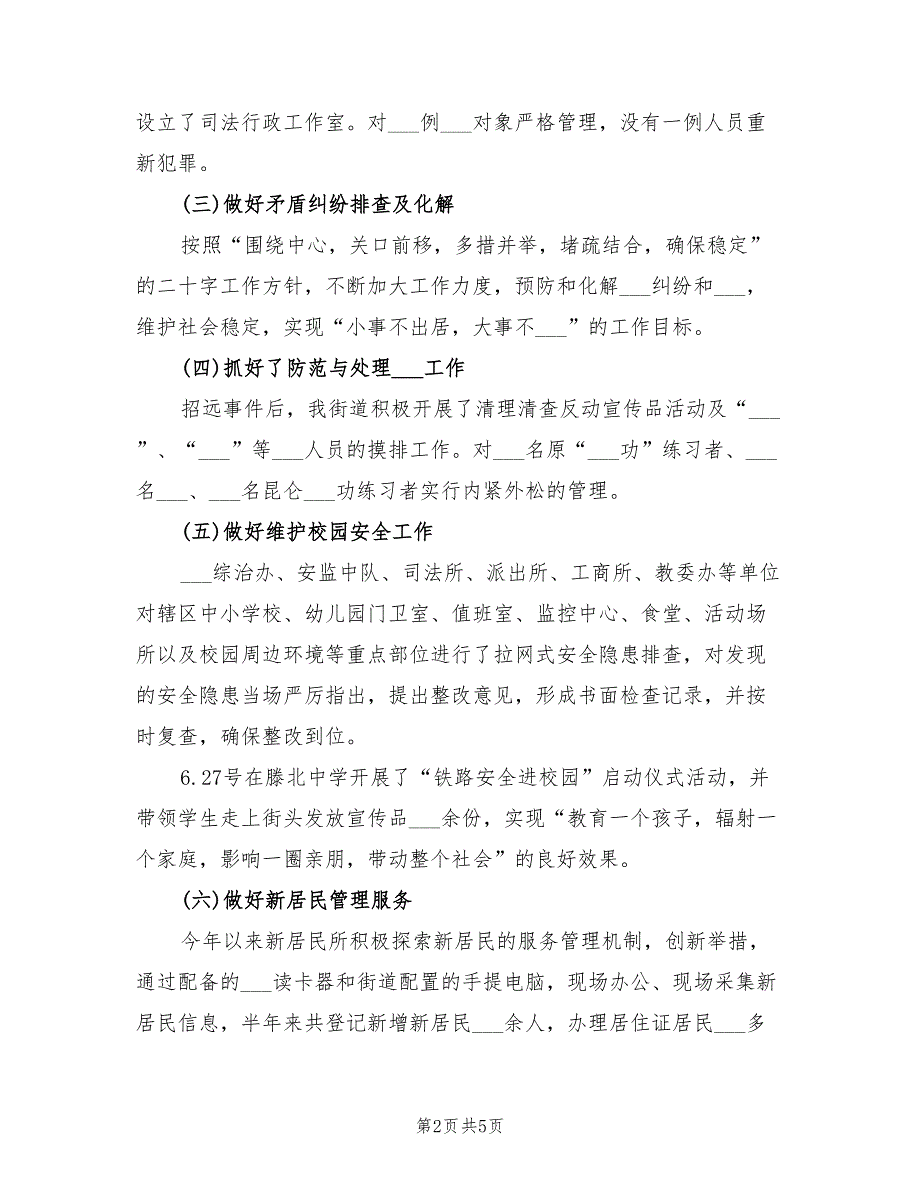 设立了司法行政工作室。对___例___对象严格管理，没有一例人员重
新犯罪。
(三)做好矛盾纠纷排查及化解
按照“围绕中心，关口前移，多措并举，堵疏结合，确保稳定”
的二十字工作方针，不断加大工作力度，预防和化解___纠纷和___，
维护社会稳定，实现“小事不出居，大事不___”的工作目标。
(四)抓好了防范与处理___工作
招远事件后，我街道积极开展了清理清查反动宣传品活动及“___
”、“___”等___人员的摸排工作。对___名原“___功”练习者、___
名___、___名昆仑___功练习者实行内紧外松的管理。
(五)做好维护校园安全工作
___综治办、安监中队、司法所、派出所、工商所、教委办等单位
对辖区中小学校、幼儿园门卫室、值班室、监控中心、食堂、活动场
所以及校园周边环境等重点部位进行了拉网式安全隐患排查，对发现
的安全隐患当场严厉指出，提出整改意见，形成书面检查记录，并按
时复查，确保整改到位。
6.27号在滕北中学开展了“铁路安全进校园”启动仪式活动，并
带领学生走上街头发放宣传品___余份，实现“教育一个孩子，辐射一
个家庭，影响一圈亲朋，带动整个社会”的良好效果。
(六)做好新居民管理服务
今年以来新居民所积极探索新居民的服务管理机制，创新举措，
通过配备的___读卡器和街道配置的手提电脑，现场办公、现场采集新
居民信息，半年来共登记新增新居民___余人，办理居住证居民___多
第2页共5页